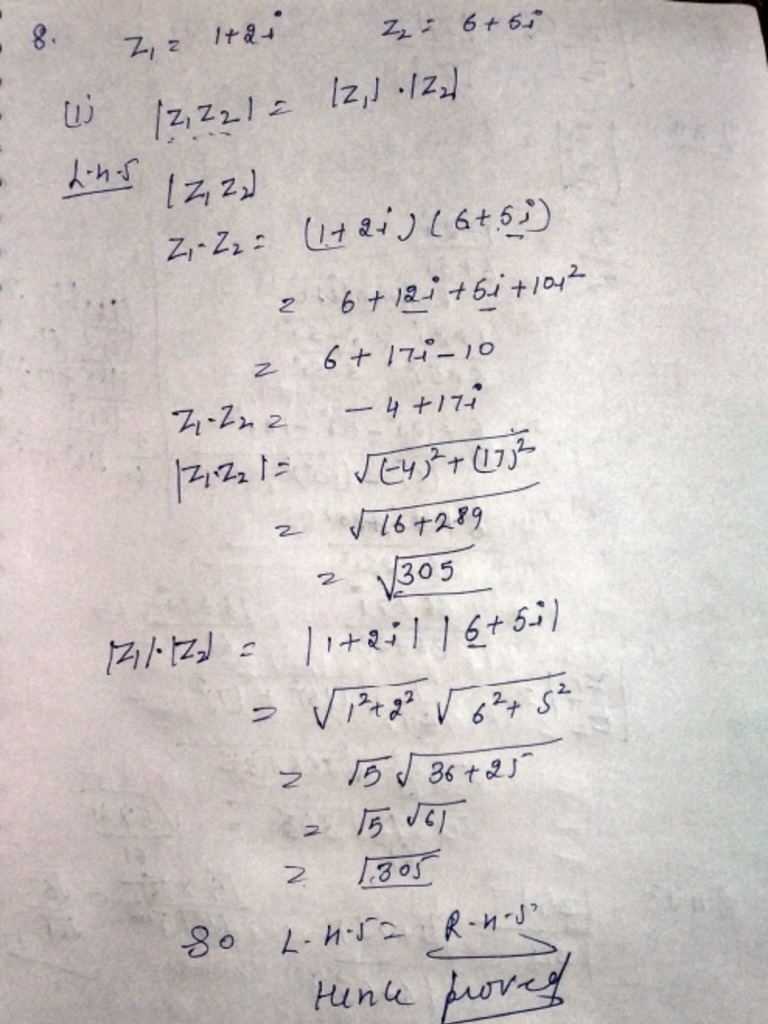 8. Z₁ = 1+2i Z₂ = 6+5i
(i) |Z₁Z₂| = |Z₁|·|Z₂|
L-H-S |Z₁Z₂|
Z₁·Z₂ = (1+2i)(6+5i)
= 6+12i+5i+10i²
= 6+17i-10
Z₁·Z₂ = -4+17i
|Z₁·Z₂| = √(-4)²+(17)²
= √16+289
= √305
|Z₁|·|Z₂| = |1+2i| |6+5i|
= √1²+2² √6²+5²
= √5 √36+25
= √5 √61
= √305
So L-H-S = R-H-S
Hence proved